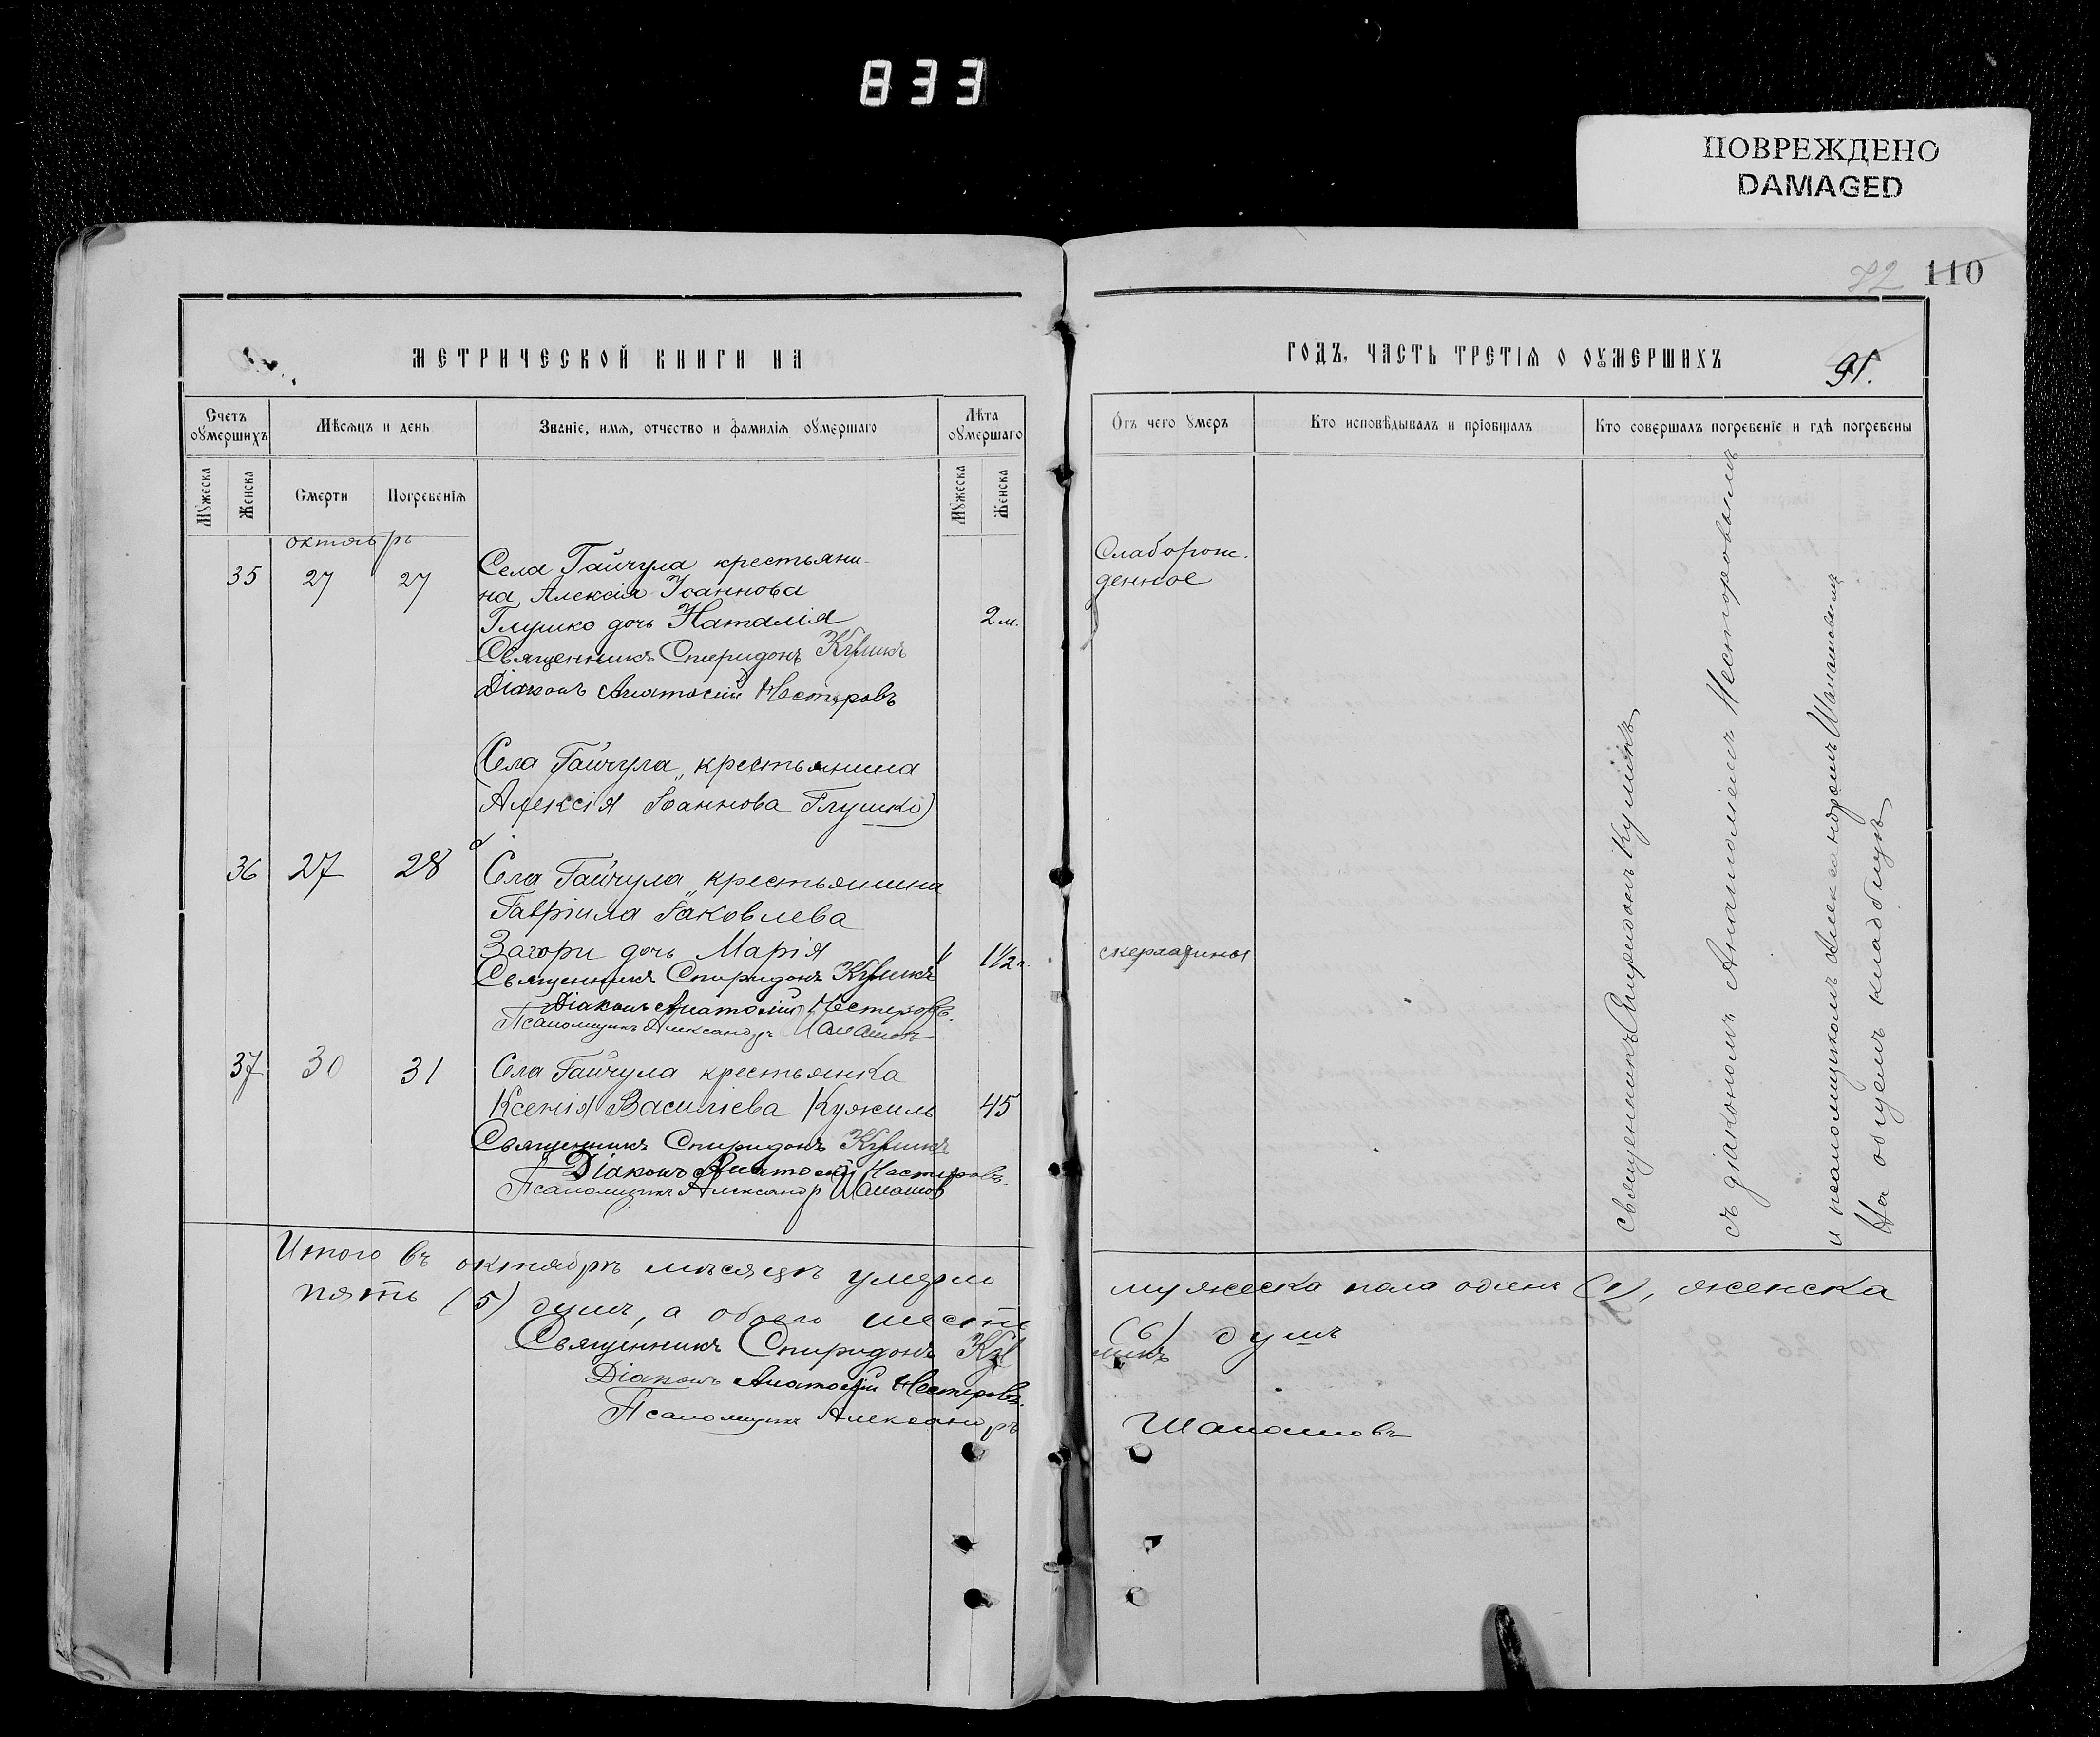 833
ПОВРЕЖДЕНО
DAMAGED
72 110
МЕТРИЧЕСКОЙ КНИГИ НА
Счетъ оумершихъ
Мѣсяцъ и день
Званіе, имя, отчество и фамилія оумершаго
Лѣта оумершаго
Мужеска
Женска
Смерти
Погребенія
Мужеска
Женска
октябрь
35 27 27 Села Гайчула крестьяни-
на Алексія Іоаннова
Глушко дочь Наталія 2 м.
Священникъ Спиридонъ Куликъ
Діаконъ Анатолій Нестеровъ
(Села Гайчула крестьянина
Алексія Іоаннова Глушко)
36 27 28 Села Гайчула крестьянина
Гавріила Іаковлева
Загори дочь Марія 1½ г.
Священникъ Спиридонъ Куликъ
Діаконъ Анатолій Нестеровъ.
Псаломщикъ Александръ
37 30 31 Села Гайчула крестьянка
Ксенія Василіева Кужиль 45
Священникъ Спиридонъ Куликъ
Діаконъ Анатолій Нестеровъ.
Псаломщикъ Александръ
Итого въ октябрѣ мѣсяцѣ умерло
пять (5) душъ, а обоего шесть
Священникъ Спиридонъ Ку
Діаконъ Анатолій Нестеровъ.
Псаломщикъ Александръ
ГОДЪ, ЧАСТЬ ТРЕТІЯ О ОУМЕРШИХЪ
91.
Отъ чего умеръ
Кто исповѣдывалъ и пріобщалъ
Кто совершалъ погребеніе и гдѣ погребены
Слаборож-
денное
скерлатины
Священникъ Спиридонъ Куликъ
съ діакономъ Анатоліемъ Несторовымъ
и псаломщикомъ Александромъ
На общемъ кладбищѣ
мужеска пола одинъ (1), женска
(6) душъ
ликъ